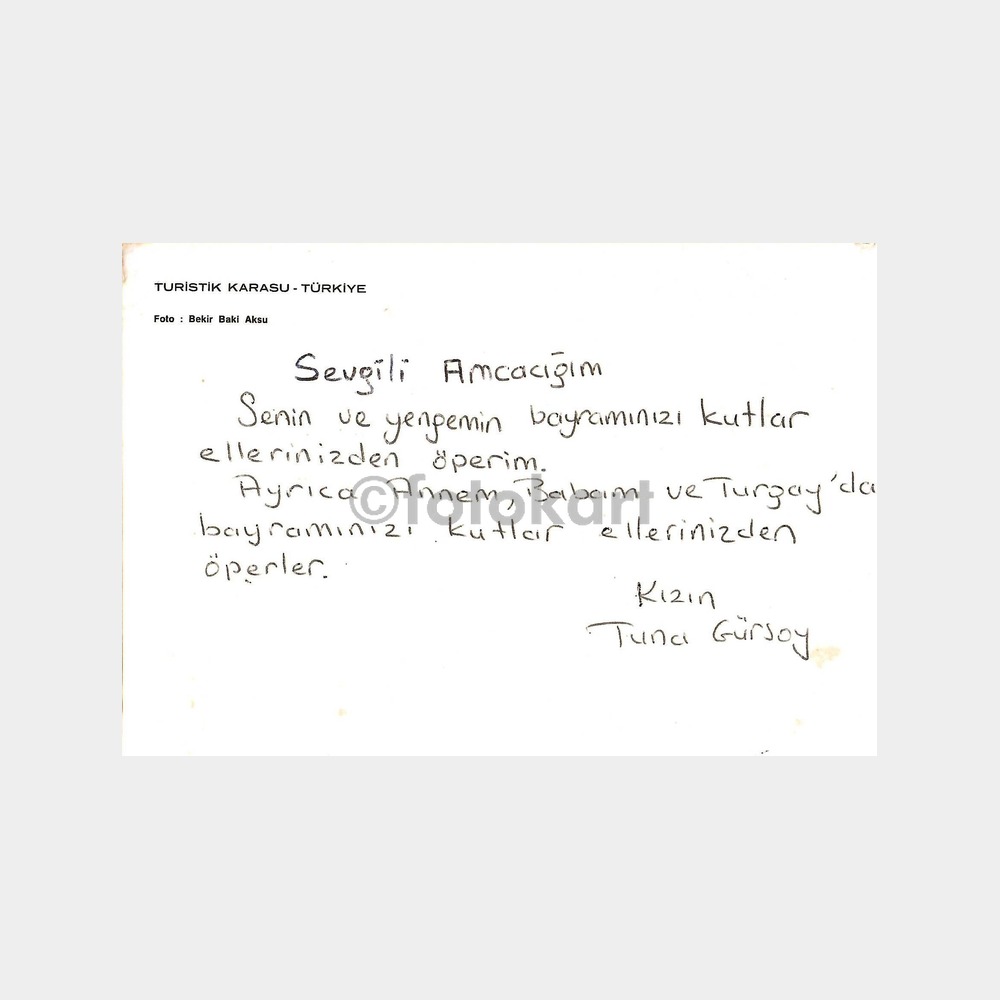 TURİSTİK KARASU - TÜRKİYE
Foto : Bekir Baki Aksu
Sevgili Amcacığım
Senin ve yengemin bayramınızı kutlar
ellerinizden öperim.
Ayrıca Annem, Babam ve Turgay'da
bayramınızı kutlar ellerinizden
öperler.
Kızın
Tuna Gürsoy
©fotokart